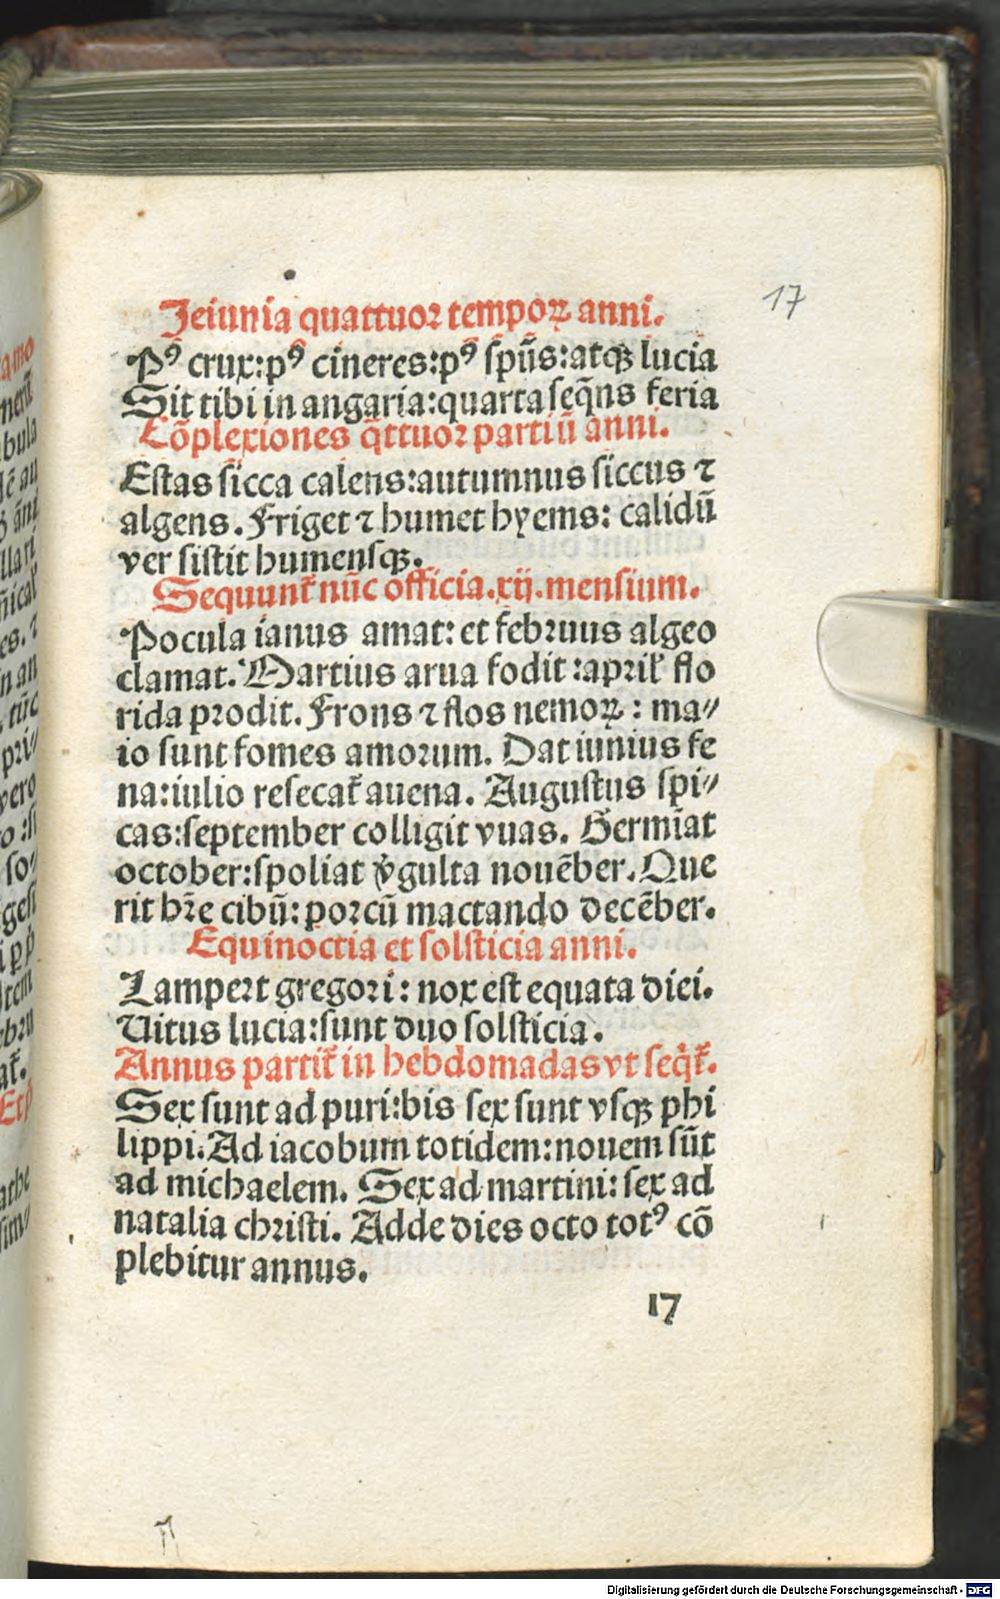 17
Jeiunia quattuor tempoꝝ anni.
Pꝰ crux:pꝰ cineres:pꝰ spūs:atqꝫ lucia
Sit tibi in angaria:quarta seq̄ns feria
Cōplexiones q̄ttuor partiū anni.
Estas sicca calens:autumnus siccus ⁊
algens. Friget ⁊ humet hyems: calidū
ver sistit humensqꝫ.
Sequunt᷑ nūc officia.xij.mensium.
Pocula ianus amat: et februus algeo
clamat. Martius arua fodit:april̛ flo
rida prodit. Frons ⁊ flos nemoꝝ: ma⸗
io sunt fomes amorum. Dat iunius fe
na:iulio resecat᷑ auena. Augustus spi⸗
cas:september colligit vuas. Sermīat
october:spoliat v̄gulta nouēber. Que
rit hr̄e cibū: porcū mactando decēber.
Equinoctia et solsticia anni.
Lampert gregori: nox est equata diei.
Uitus lucia:sunt duo solsticia.
Annus partit᷑ in hebdomadas vt seq̄t᷑.
Sex sunt ad puri:bis sex sunt vsqꝫ phi
lippi. Ad iacobum totidem:nouem sūt
ad michaelem. Sex ad martini: sex ad
natalia christi. Adde dies octo totꝰ cō
plebitur annus.
17
Digitalisierung gefördert durch die Deutsche Forschungsgemeinschaft - DFG